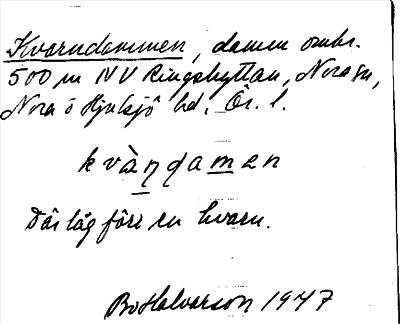 Kvarndammen, damm omkr.
500 m NV Ringshyttan, Nora sn,
Nora o Hjulsjö hd. Ör. l.
kvàṇdamen
Där låg förr en kvarn.
Bo Halvarson 1947